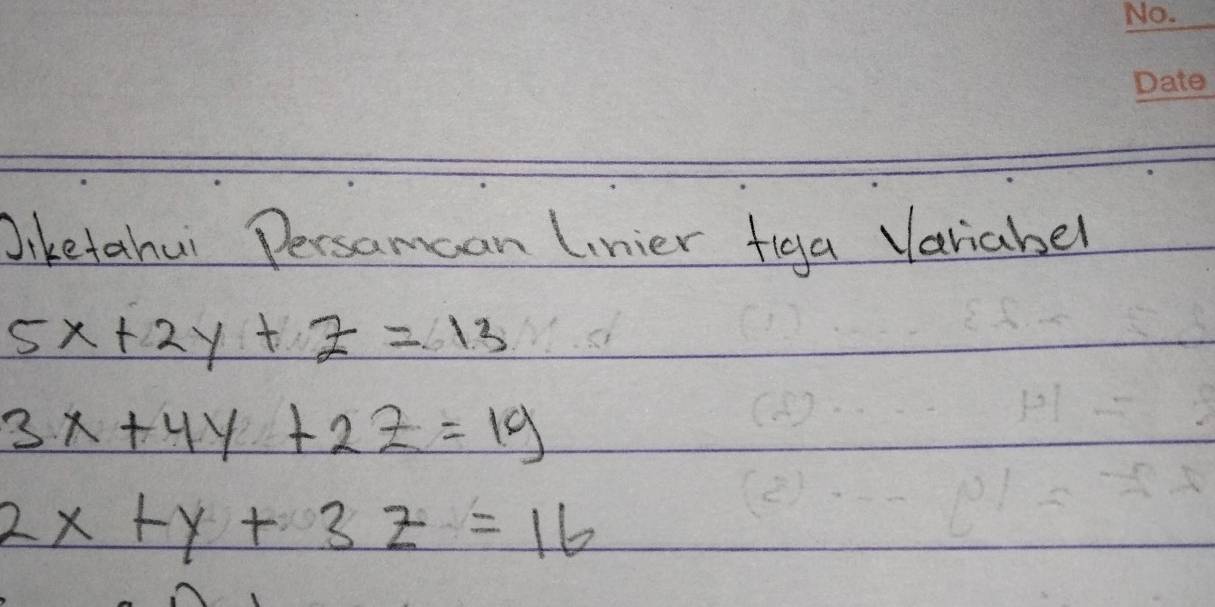 No.
Date
Diketahui Persamaan linier tiga Variabel
5x + 2y + z = 13
3x + 4y + 2z = 19
2x + y + 3z = 16